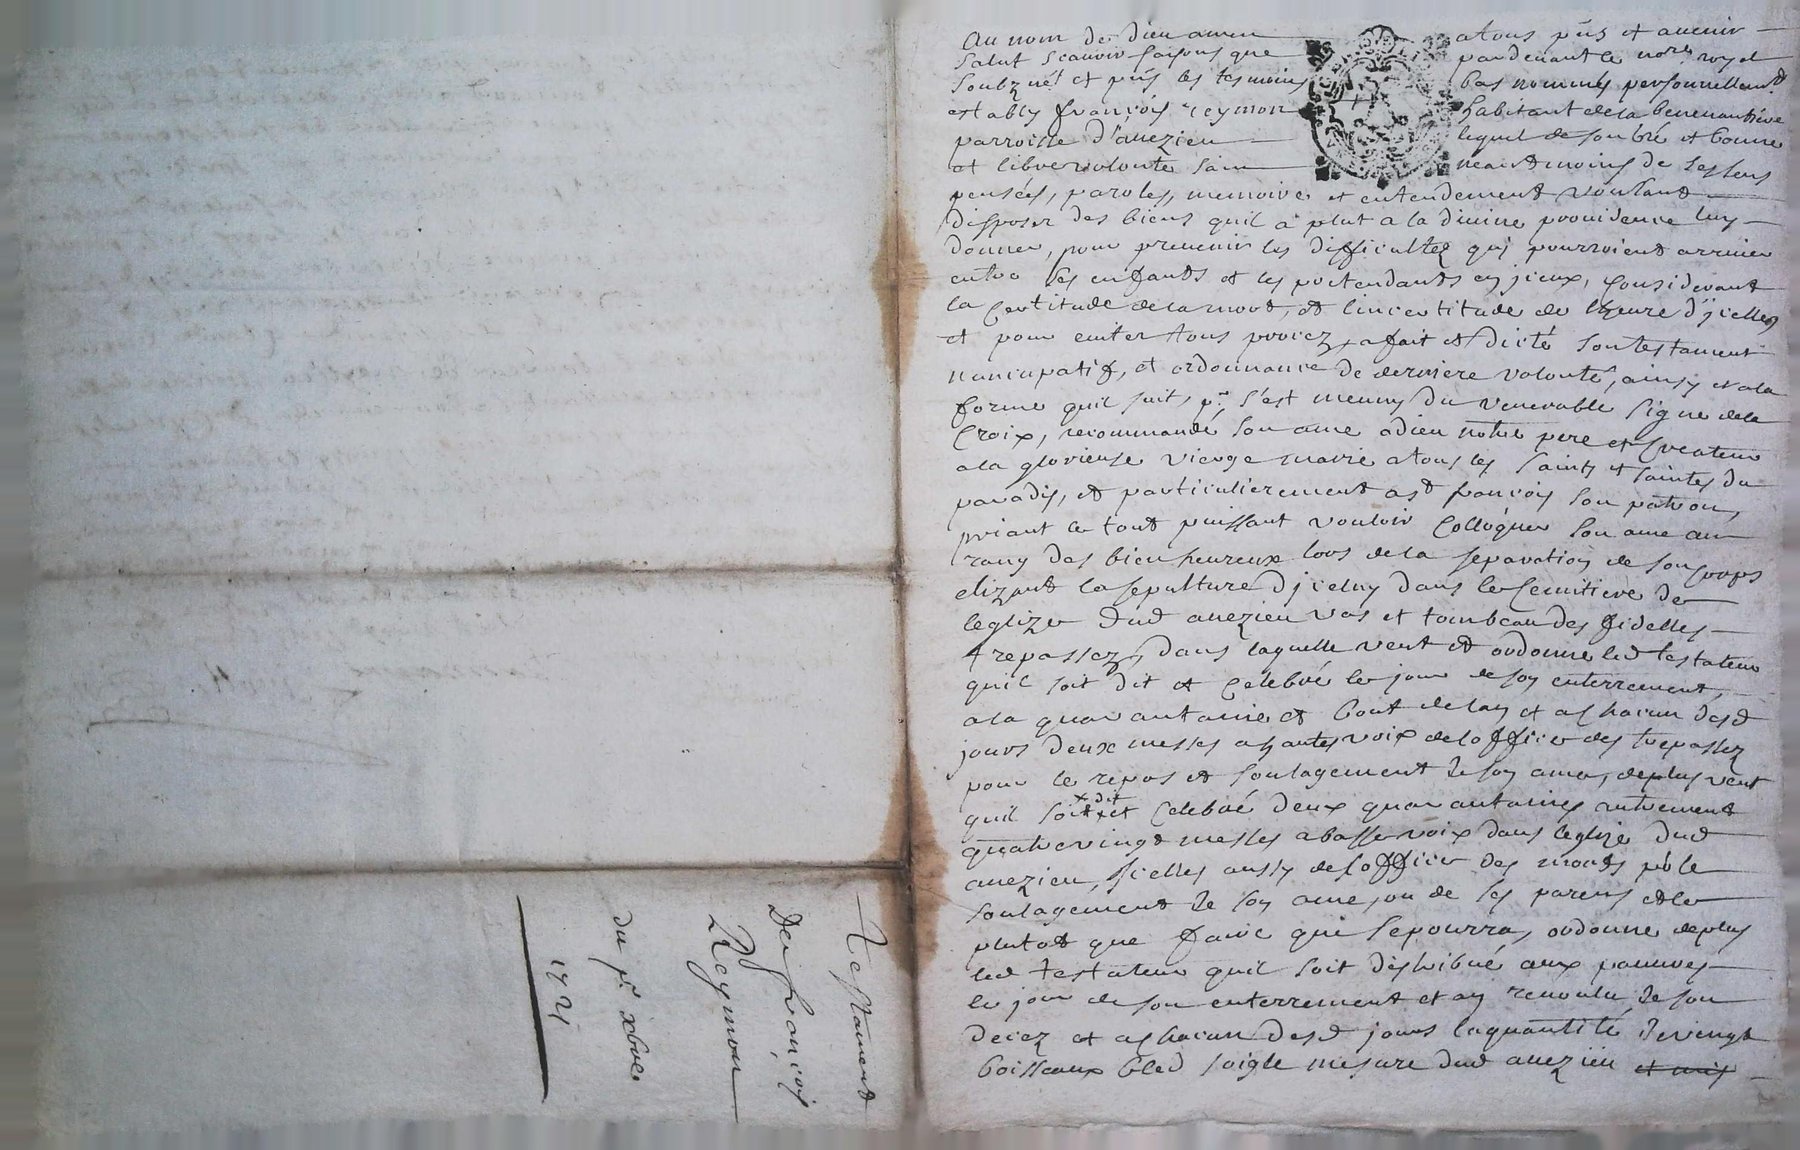 Testament
De françois
Reymon
du pr xbre
1721
Au nom de dieu amen atous pñs et auenir
Salut scauoir faisons que pardeuant le nore royal
soubzné et pñs les tesmoins bas nommés personnellemt
estably françois reymon habitant de la
parroisse d'auezieu lequel de son gré et bonne
et libre volonte sain neantmoins de ses sens
pensées, paroles, memoire et entendement voulant
disposer des biens quil a plut a la diuine prouidence luy
donner, pour preuenir les difficultez qui pourroient arriuer
entre ses enfants et les pretendants en jceux, considerant
la certitude de la mort, et lincertitude de lheure d'jcelle
et pour euiter tous procez, a fait et dicté son testament
nuncupatif, et ordonnance de derniere volonté, ainsy et a la
forme quil suit, pr s'est meuny du venerable signe de la
croix, recommandé son ame a dieu notre pere et createur
a la glorieuse vierge marie a tous les saints et saintes du
paradis, et particulierement a st françois son patron,
priant le tout puissant vouloir colloquer son ame au
rang des bien heureux lors de la separation de son corps
elizant la sepulture d'jceluy dans le cemitiere de
leglize dud auezieu vas et tombeau des fidelles
trepassez, dans laquelle veut et ordonne led testateur
quil soit dit et celebré le jour de son enterrement,
a la quarantaine et bout de lan et a chacun desd
jours deux messes a hautes voix de loffice des trepassez
pour le repos et soulagement de son ame, de plus veut
quil soit dit et celebré deux quarantaines autrement
quatre vingt messes a basse voix dans leglize dud
auezieu, jcelles aussy de loffice des morts pr le
soulagement de son ame ou de ses parens et le
plutot que faire que se pourra, ordonne de plus
led testateur quil soit distribué aux pauures
le jour de son enterrement et an reuoulu de son
decez et a chacun desd jours la quantité de vingt
boisseaux bled soigle mesure dud auezieu